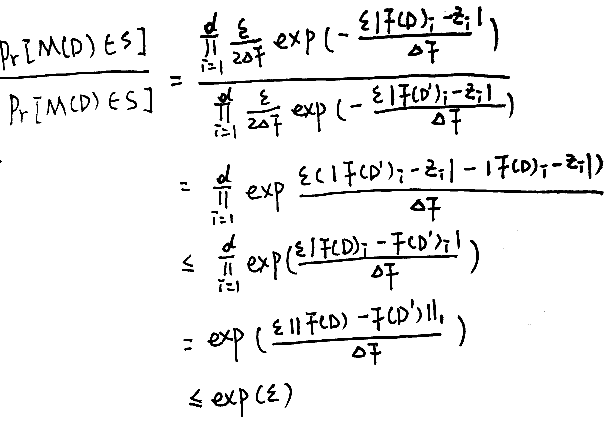 Pr[M(D)∈S] / Pr[M(D)∈S] = ∏_{i=1}^{d} ε/2Δf exp(-ε|f(D)_i - z_i|/Δf) / ∏_{i=1}^{d} ε/2Δf exp(-ε|f(D')_i - z_i|/Δf)
= ∏_{i=1}^{d} exp ε(|f(D')_i - z_i| - |f(D)_i - z_i|)/Δf
≤ ∏_{i=1}^{d} exp(ε|f(D)_i - f(D')_i|/Δf)
= exp(ε||f(D) - f(D')||_1/Δf)
≤ exp(ε)